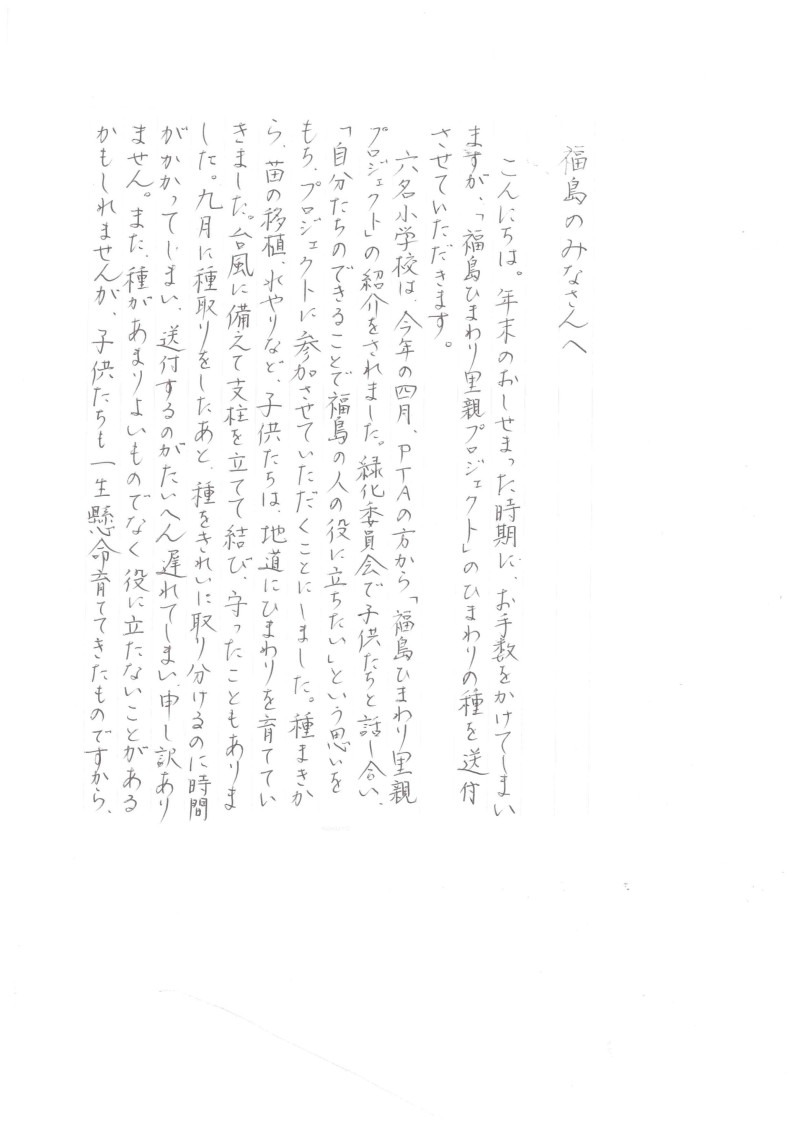 福島のみなさんへ
こんにちは。年末のおしせまった時期に、お手数をかけてしまい
ますが、「福島ひまわり里親プロジェクト」のひまわりの種を送付
させていただきます。
六名小学校は、今年の四月、PTAの方から「福島ひまわり里親
プロジェクト」の紹介をされました。緑化委員会で子供たちと話し合い、
「自分たちのできることで福島の人の役に立ちたい」という思いを
もち、プロジェクトに参加させていただくことにしました。種まきか
ら、苗の移植、水やりなど、子供たちは、地道にひまわりを育ててい
きました。台風に備えて支柱を立てて結び、守ったこともありま
した。九月に種取りをしたあと、種をきれいに取り分けるのに時間
がかかってしまい、送付するのがたいへん遅れてしまい、申し訳あり
ません。また、種があまりよいものでなく役に立たないことがある
かもしれませんが、子供たちも一生懸命育ててきたものですから、